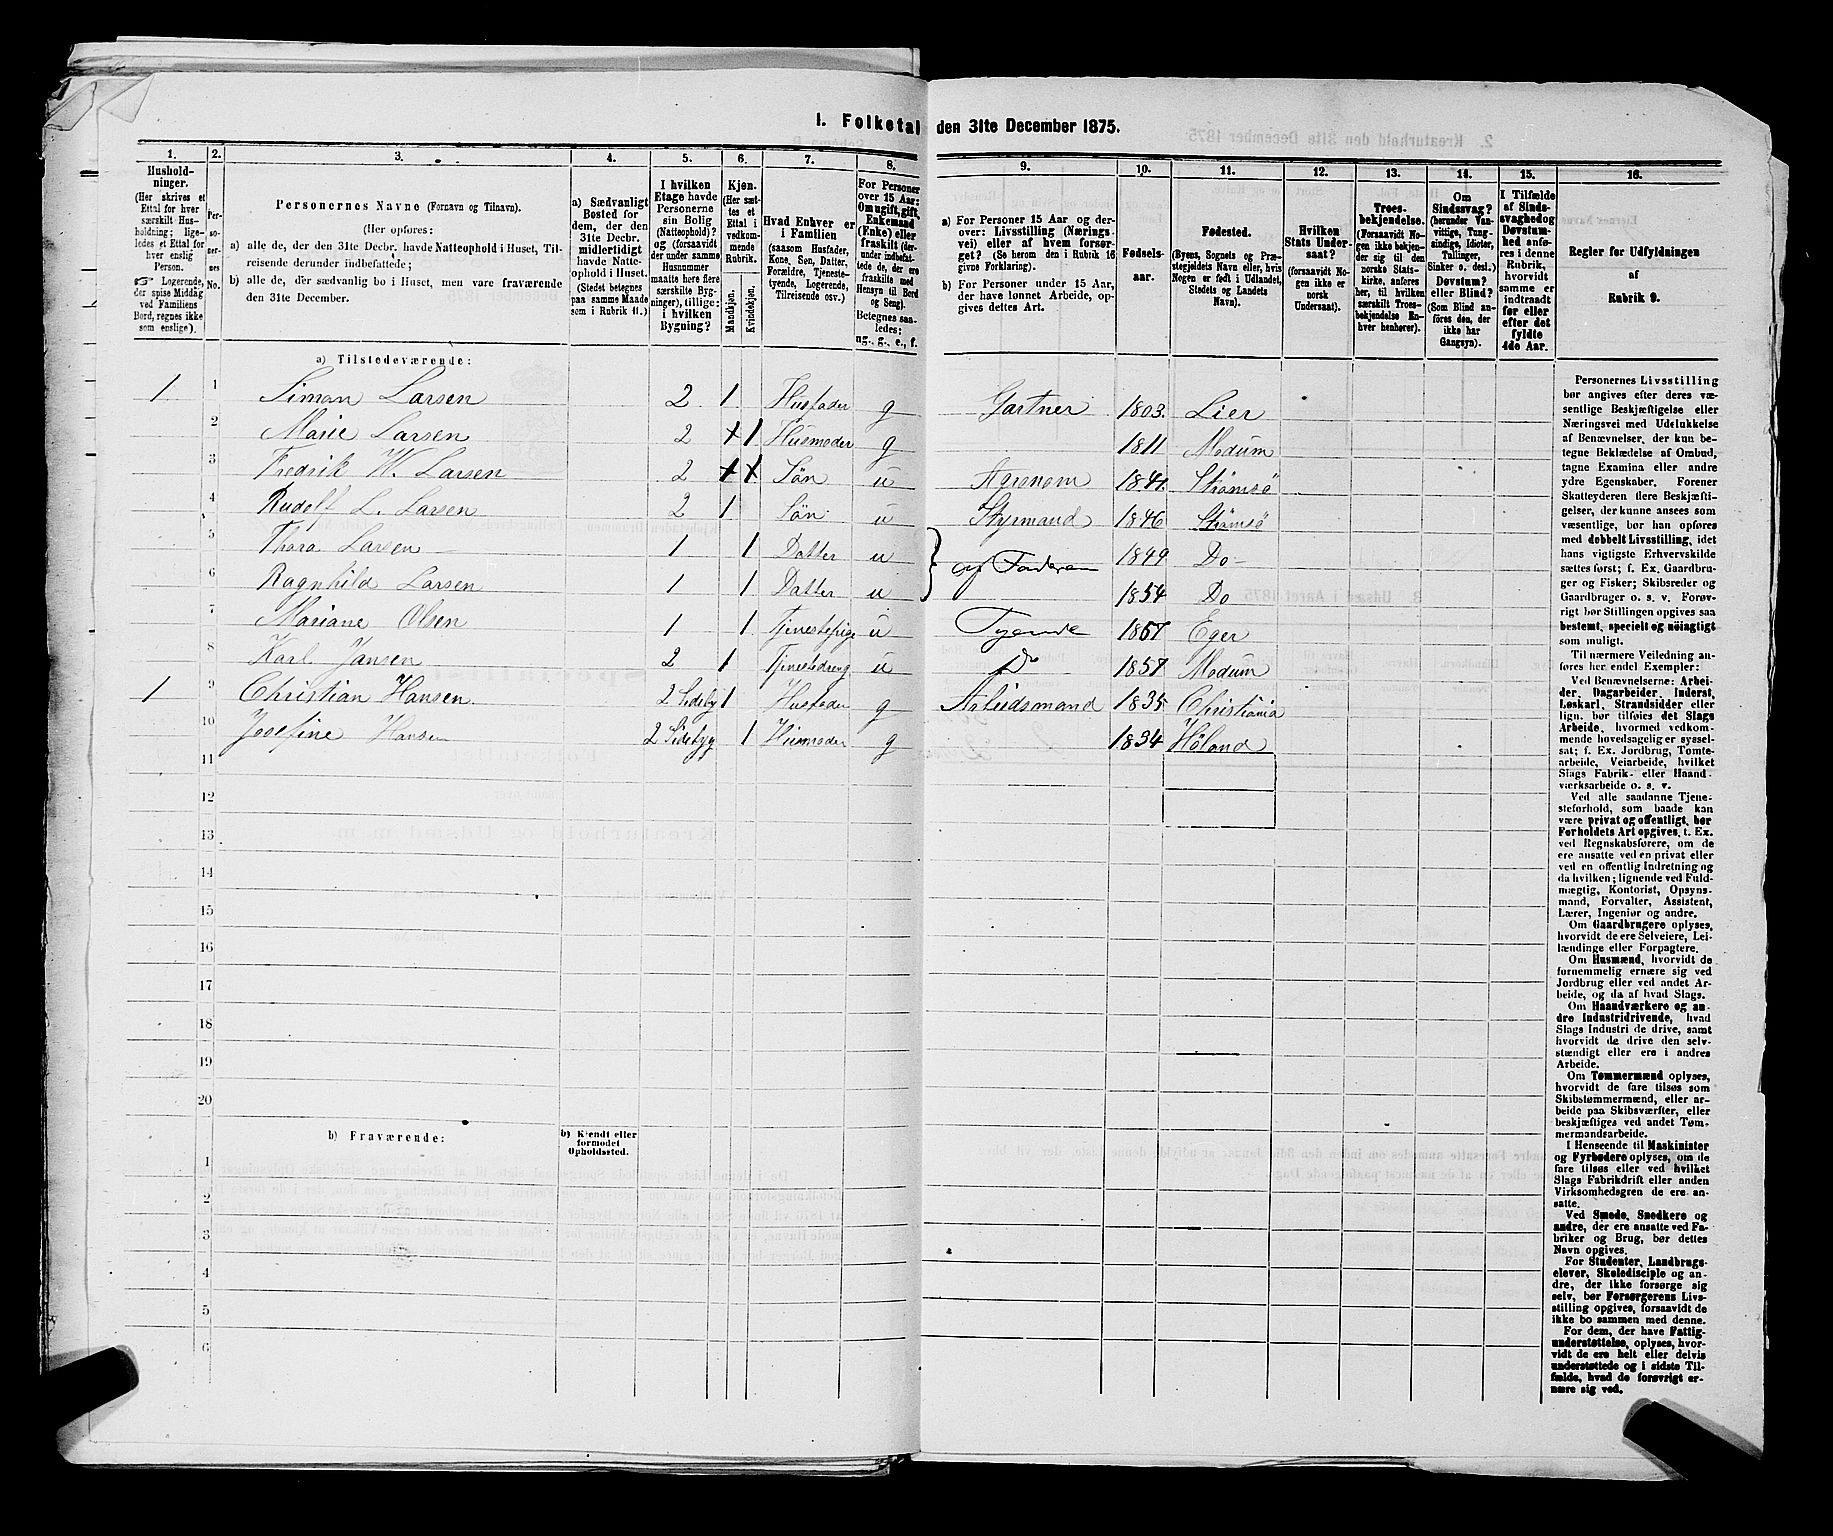 1. Folketal den 31te December 1875.
1. 2. 3. 4. 5. 6. 7. 8. 9. 10. 11. 12. 13. 14. 15. 16.
Hushold-
ninger.
(Her skrives et
Ettal for hver
særskilt Hus-
holdning; lige-
ledes et Ettal for
hver enslig
Person.
Logerende,
der spise Middag
ved Familiens
Bord, regnes ikke
som enslige).
Per-
so-
ner-
nes
No.
Personernes Navne (Fornavn og Tilnavn).
(Her opføres:
a) alle de, der den 31te Decbr. havde Natteophold i Huset, Til-
reisende derunder indbefattede;
b) alle de, der sædvanlig bo i Huset, men vare fraværende
den 31te December.
a) Sædvanligt
Bosted for
dem, der den
31te Decbr.
midlertidigt
havde Natte-
ophold i Huset.
(Stedet betegnes
paa samme Maade
som i Rubrik 11.)
I hvilken
Etage havde
Personerne
sin Bolig
(Natteophold)?
og (forsaavidt
der under samme
Husnummer
maatte høre flere
særskilte Byg-
ninger), tillige:
i hvilken
Bygning?
Kjøn.
(Her sæt-
tes et
Ettal i
vedkom-
mende
Rubrik.
Mandkjøn.
Kvindekjøn.
Hvad Enhver er
i Familien
(saasom Husfader,
Kone, Søn, Datter,
Forældre, Tjeneste-
tyende, Logerende,
Tilreisende osv.)
For Personer
over 15 Aar:
Om ugift, gift,
Enkemand
(Enke) eller
fraskilt (der-
under indbefat-
tede de, der ere
fraskilte med
Hensyn til Bord
og Seng).
Betegnes saa-
ledes:
ug., g., e., f.
a) For Personer 15 Aar og der-
over: Livsstilling (Nærings-
vei) eller af hvem forsør-
get? (Se herom den i Rubrik 16
givne Forklaring).
b) For Personer under 15 Aar,
der have lønnet Arbeide, op-
gives dettes Art.
Fødsels-
aar.
Fødested.
(Byens, Sognets og Præ-
stegjeldets Navn eller, hvis
Nogen er født i Udlandet,
Stedets og Landets
Navn).
Hvilken
Stats Under-
saat?
(forsaavidt No-
gen ikke er
norsk
Undersaat).
Troes-
bekjendelse.
(Forsaavidt No-
gen ikke bekjen-
der sig til den
norske Stats-
kirke, anføres
her, til hvilken
særskilt Troes-
bekjendelse En-
hver henhører).
Om
Sindssvag?
(herunder Van-
vittige, Tung-
sindige, Idioter,
Tullinger,
Sinker o. desl.)
Døvstum?
eller Blind?
(Som Blind an-
føres den, der
ikke har
Gangsyn).
I Tilfælde
af Sinds-
svaghed og
Døvstum-
hed anfø-
res i denne
Rubrik,
hvorvidt
samme er
indtraadt
før eller
efter det
fyldte
4de Aar.
Regler for Udfyldningen
af
Rubrik 9.
a) Tilstedeværende:
1 1 Simon Larsen 2 1 Husfader g Gartner 1803 Lier
2 Marie Larsen 2 1 Husmoder g 1811 Modum
3 Fredrik W. Larsen 2 Sön u Agronom 1841 Strömsö
4 Rudolf L. Larsen 2 1 Sön u Styrmand 1846 Strömsö
5 Thora Larsen 1 1 Datter u 1849 Do
6 Ragnhild Larsen 1 1 Datter u af Faderen 1854 Do
7 Mariane Olsen 1 1 Tjenestepige u Tyende 1857 Eger
8 Karl Jansen 2 1 Tjenestedreng u Do 1857 Modum
1 9 Christian Hansen 2 Sideby 1 Husfader g Arbeidsmand 1835 Christiania
10 Josefine Hansen 2 Sidebyg 1 Husmoder g 1834 Höland
11
12
13
14
15
16
17
18
19
20
b) Fraværende:
b) Kjendt eller
formodet
Opholdssted.
1
2
3
4
5
6
Personernes Livsstilling
bør angives efter deres væ-
sentlige Beskjæftigelse eller
Næringsvei med Udelukkelse
af Benævnelser, der kun be-
tegne Beklædelse af Ombud,
tagne Examina eller andre
ydre Egenskaber. Forener
Skatteyderen flere Beskjæfti-
gelser, der kunne ansees som
væsentlige, bør han opføres
med dobbelt Livsstilling, idet
hans vigtigste Erhvervskilde
sættes først; f. Ex. Gaardbru-
ger og Fisker; Skibsreder og
Gaardbruger o. s. v. Forøv-
rigt bør Stillingen opgives saa
bestemt, specielt og nöiagtigt
som muligt.
Til nærmere Veiledning an-
føres her endel Exempler:
Ved Benævnelserne: Arbei-
der, Dagarbeider, Inderst,
Løskarl, Strandsidder eller
lign. bør tilføies det Slags
Arbeide, hvormed vedkom-
mende hovedsagelig er syssel-
sat; f. Ex. Jordbrug, Tomte-
arbeide, Veiarbeide, hvilket
Slags Fabrik- eller Haand-
værksarbeide o. s. v.
Ved alle saadanne Tjene-
steforhold, som baade kan
være privat og offentligt, bør
Forholdets Art opgives, t. Ex.
ved Regnskabsførere, om de
ere ansatte ved en privat eller
ved en offentlig Indretning og
da hvilken; lignende ved Fuld-
mægtig, Kontorist, Opsyns-
mand, Forvalter, Assistent,
Lærer, Ingeniør og andre.
Om Gaardbrugere oplyses,
hvorvidt de ere Selveiere, Lei-
lændinge eller Forpagtere.
Om Husmænd, hvorvidt de
fornemmelig ernære sig ved
Jordbrug eller ved andet Ar-
beide, og da af hvad Slags.
Om Haandværkere og an-
dre Industridrivende, hvad
Slags Industri de drive, samt
hvorvidt de drive den selv-
stændigt eller ere i andres
Arbeide.
Om Tømmermænd oplyses,
hvorvidt de fare tilsøs som
Skibstømmermænd, eller ar-
beide paa Skibsværfter, eller
beskjæftiges ved andet Tøm-
mermandsarbeide.
I Henseende til Maskinister
og Fyrbødere oplyses, om de
fare tilsøs eller ved hvilket
Slags Fabrikdrift eller anden
Virksomhedsgren de ere an-
satte.
Ved Smede, Snedkere og
andre, der ere ansatte ved Fa-
briker og Brug, bør dettes
Navn opgives.
For Studenter, Landbrugs-
elever, Skoledisciple og an-
dre, der ikke forsørge sig
selv, bør Forsørgerens Livs-
stilling opgives, forsaavidt de
ikke bo sammen med denne.
For dem, der have Fattig-
understøttelse, oplyses, hvor-
vidt de ere helt eller delvis
understøttede og i sidste Til-
fælde, hvad de forøvrigt er-
nære sig ved.